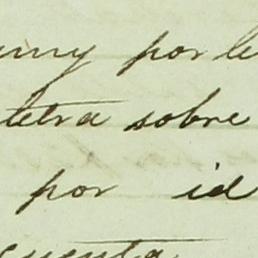 por le
letra sobre
por id
cuenta